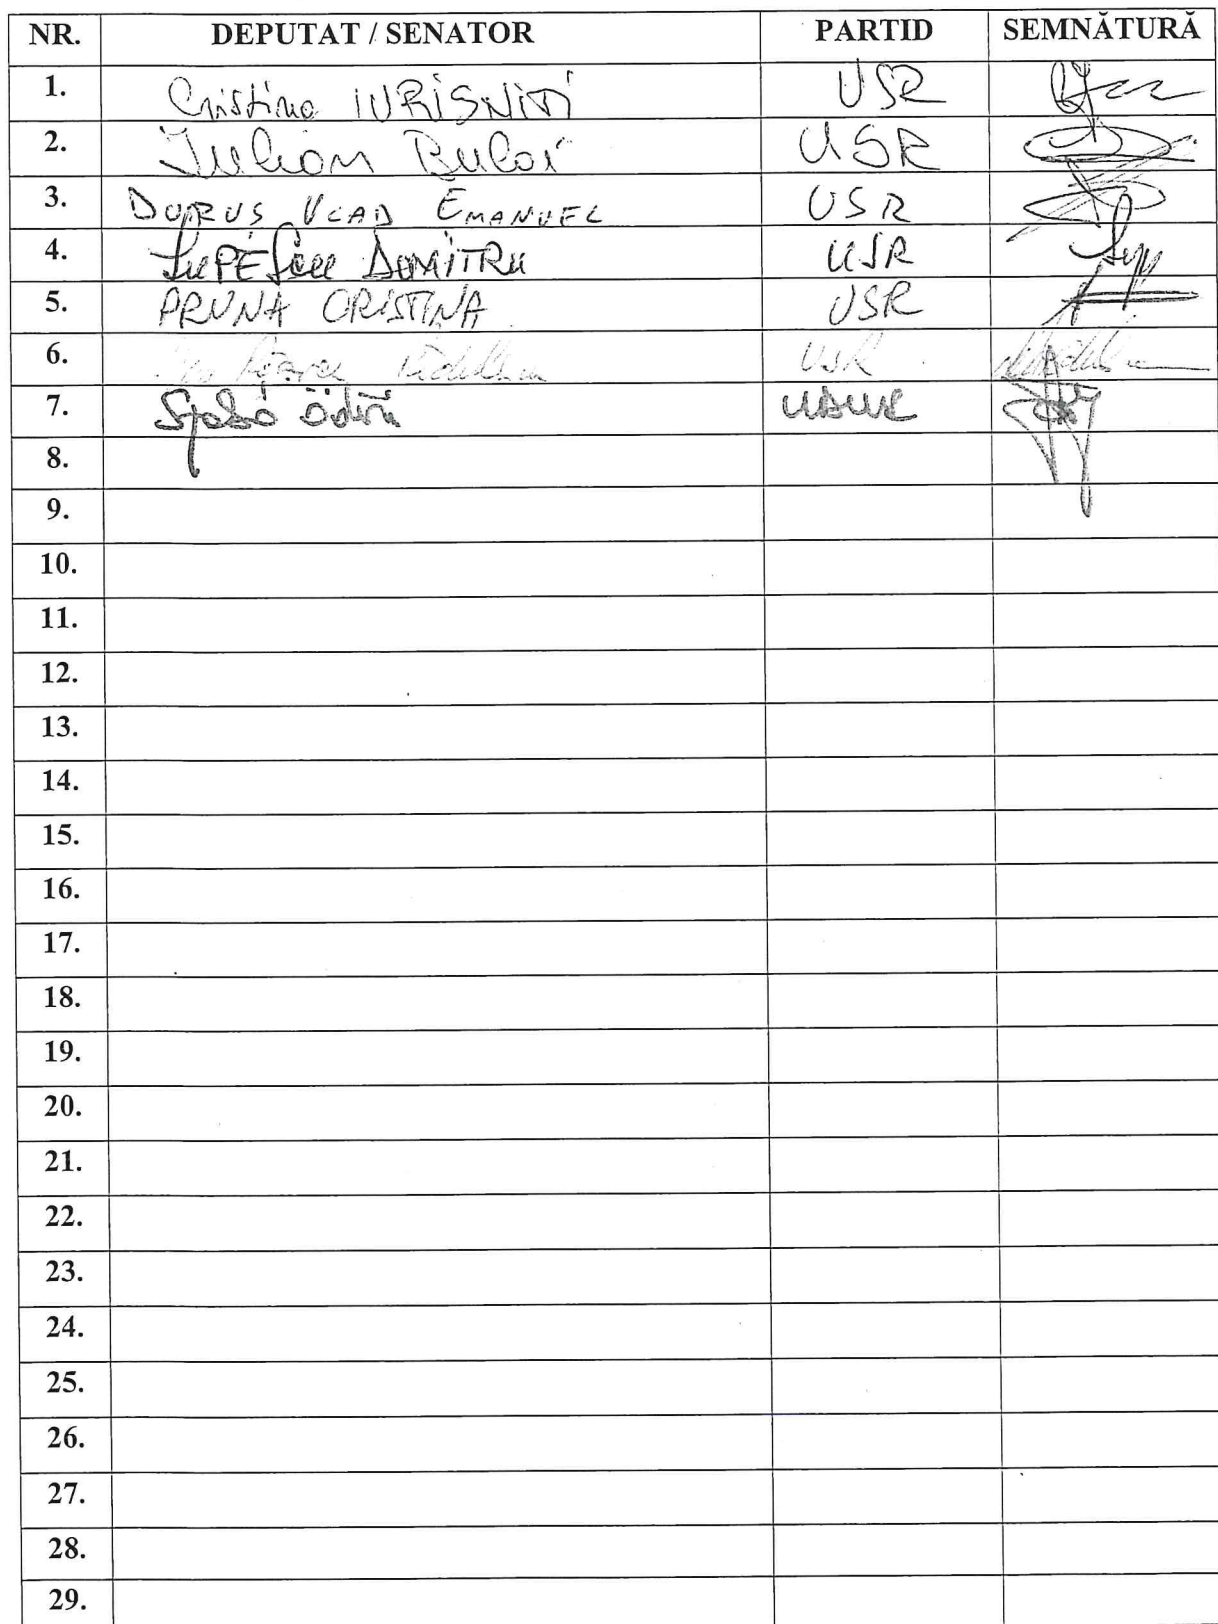 NR. DEPUTAT / SENATOR PARTID SEMNĂTURĂ
1. Cristina IURISNITI USR
2. Iulian Bulai USR
3. DURUS VLAD EMANUEL USR
4. LuPEScu DuMITRu USR
5. PRUNA CRISTINA USR
6. USR
7. Szabó Ödön UDMR
8.
9.
10.
11.
12.
13.
14.
15.
16.
17.
18.
19.
20.
21.
22.
23.
24.
25.
26.
27.
28.
29.